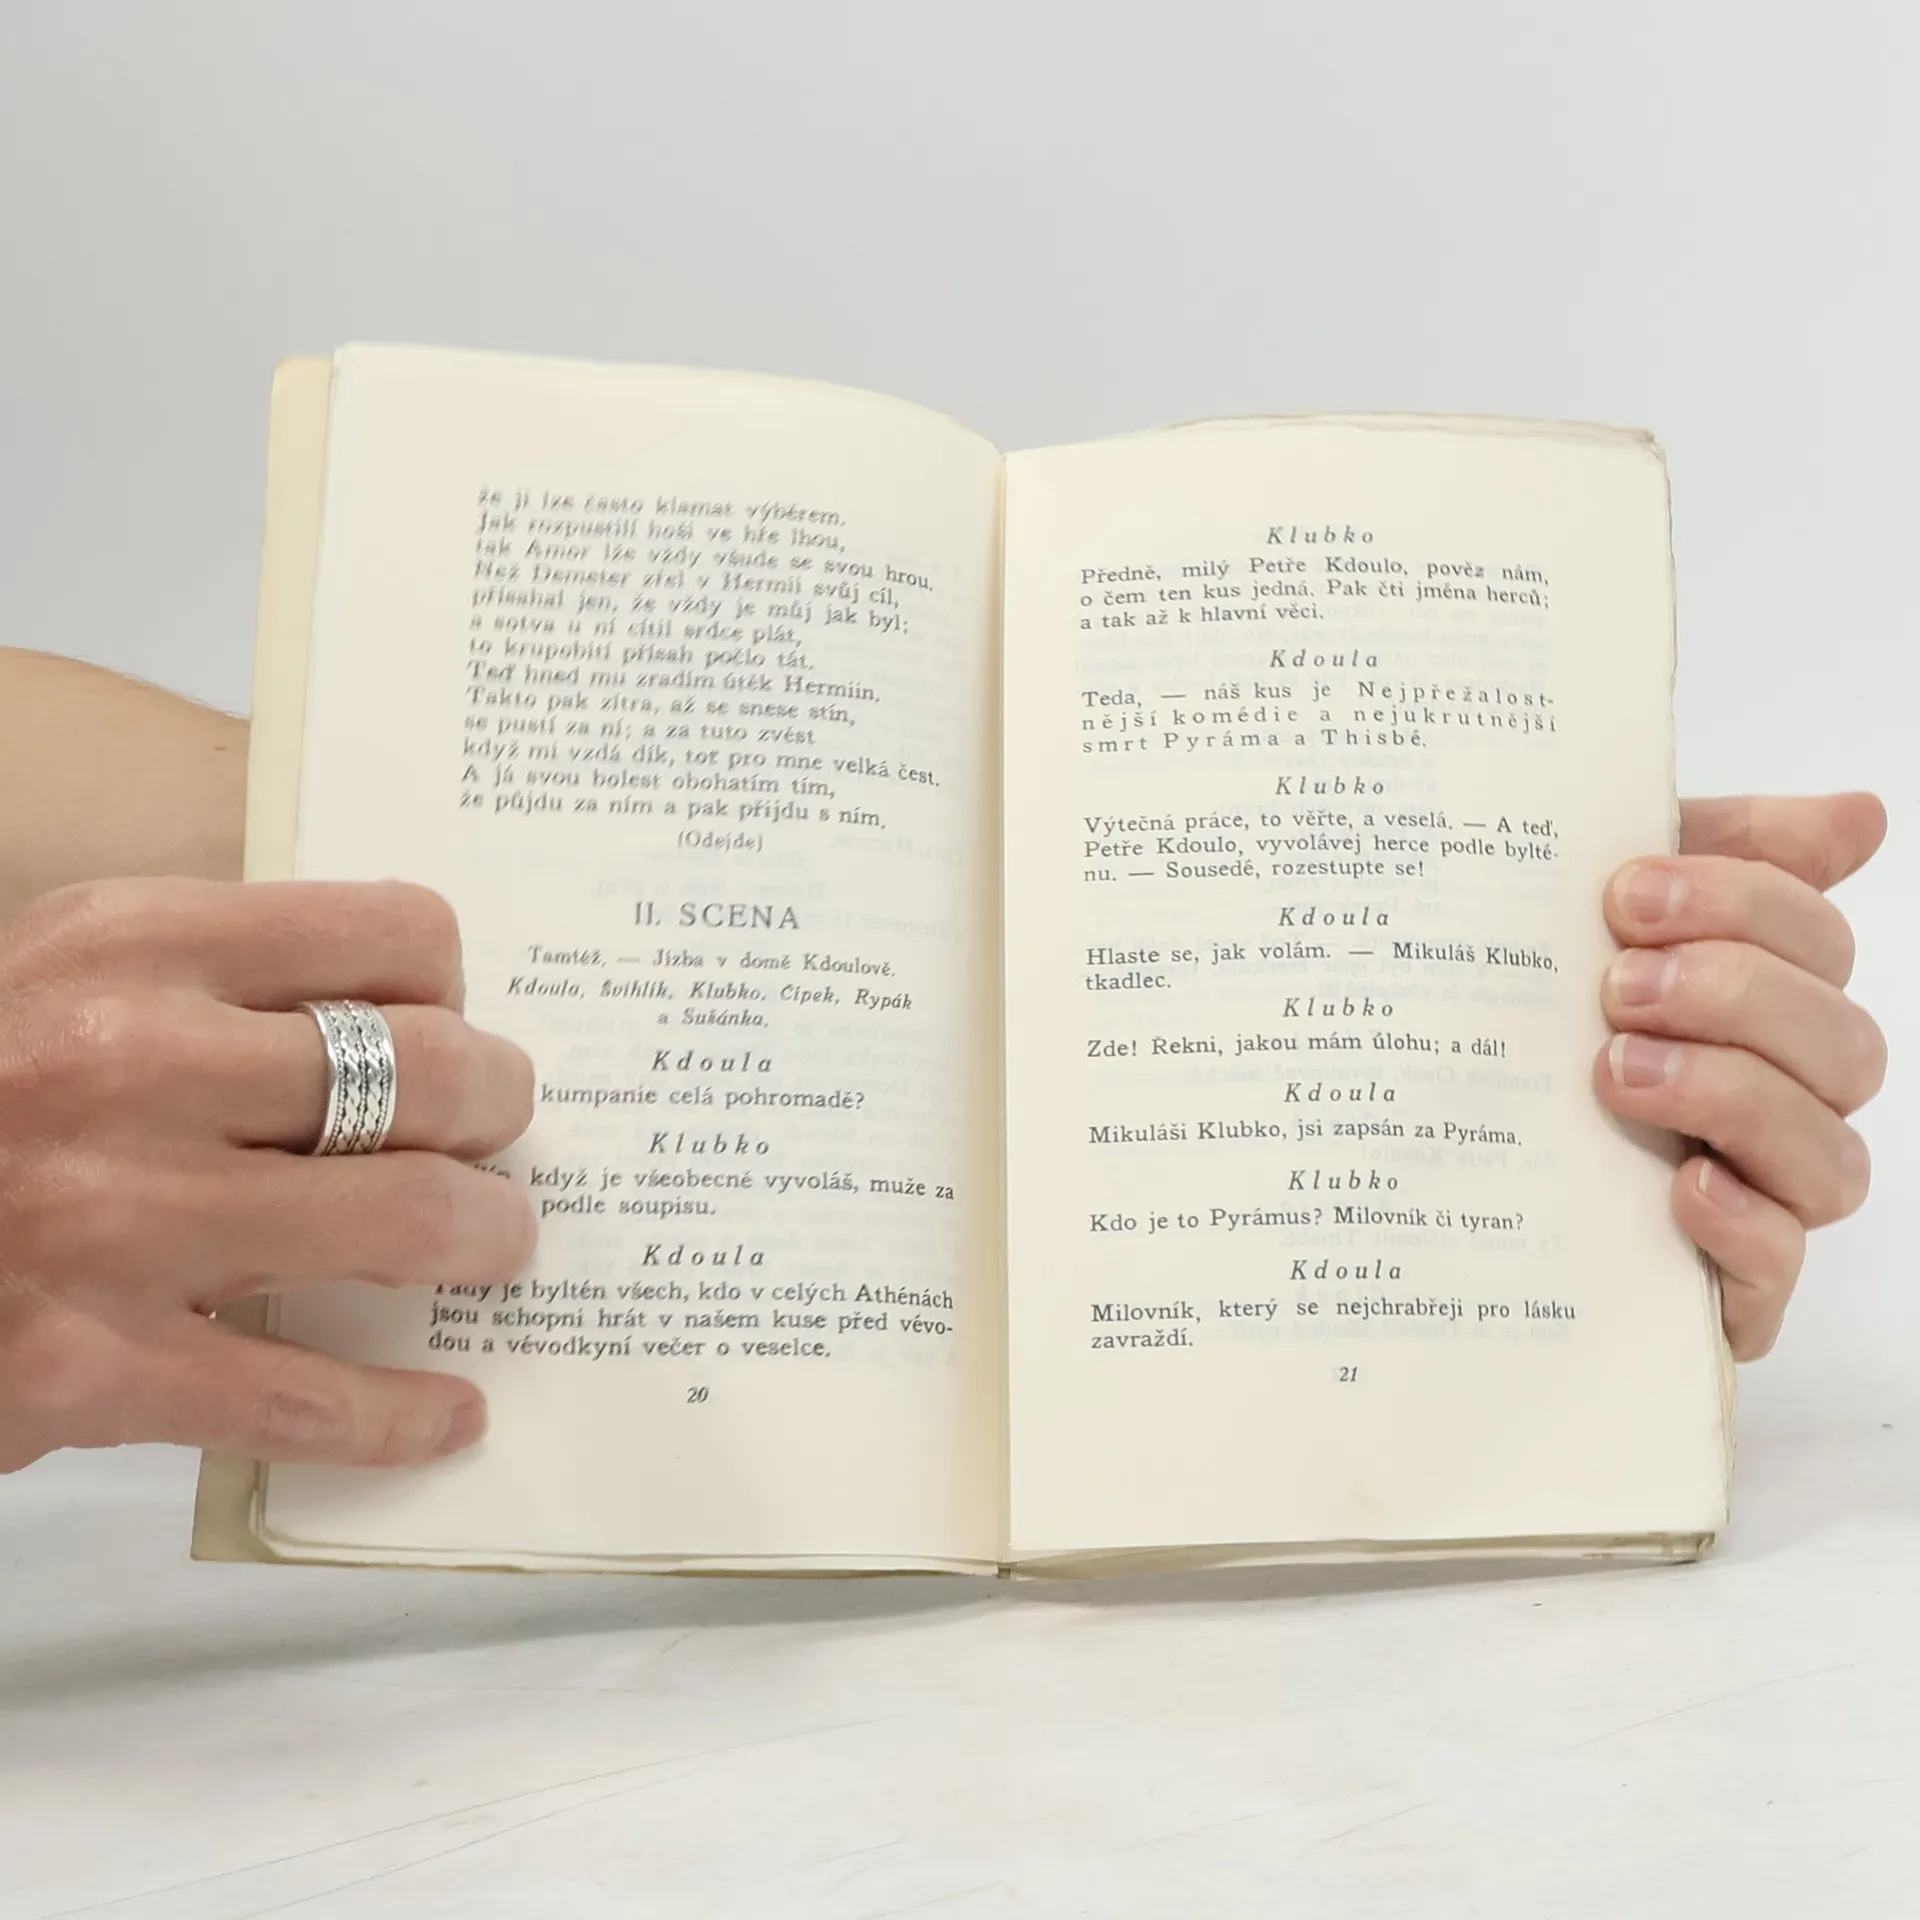 že ji lze často klamat výběrem.
Jak rozpustilí hoši ve hře lhou,
tak Amor lže vždy všude se svou hrou.
Než Demeter zřel v Hermii svůj cíl,
přísahal jen, že vždy je můj jak byl;
a sotva u ní cítil srdce plát,
to krupobití přísah počlo tát.
Teď hned mu zradím útěk Hermiin.
Takto pak zítra, až se snese stín,
se pustí za ní; a za tuto zvěst
když mi vzdá dík, toť pro mne velká čest.
A já svou bolest obohatím tím,
že půjdu za ním a pak přijdu s ním.
(Odejde)
II. SCENA
Tamtéž. — Jizba v domě Kdoulově.
Kdoula, Švihlík, Klubko, Cípek, Rypák
a Sušánka.
Kdoula
kumpanie celá pohromadě?
Klubko
když je všeobecně vyvoláš, muže za
podle soupisu.
Kdoula
Tady je byltén všech, kdo v celých Athénách
jsou schopni hrát v našem kuse před vévo-
dou a vévodkyní večer o veselce.
20
Klubko
Předně, milý Petře Kdoulo, pověz nám,
o čem ten kus jedná. Pak čti jména herců;
a tak až k hlavní věci.
Kdoula
Teda, — náš kus je Nejpřežalost-
nější komédie a nejukrutnější
smrt Pyráma a Thisbé.
Klubko
Výtečná práce, to věřte, a veselá. — A teď,
Petře Kdoulo, vyvolávej herce podle bylté-
nu. — Sousedé, rozestupte se!
Kdoula
Hlaste se, jak volám. — Mikuláš Klubko,
tkadlec.
Klubko
Zde! Řekni, jakou mám úlohu; a dál!
Kdoula
Mikuláši Klubko, jsi zapsán za Pyráma.
Klubko
Kdo je to Pyrámus? Milovník či tyran?
Kdoula
Milovník, který se nejchrabřeji pro lásku
zavraždí.
21